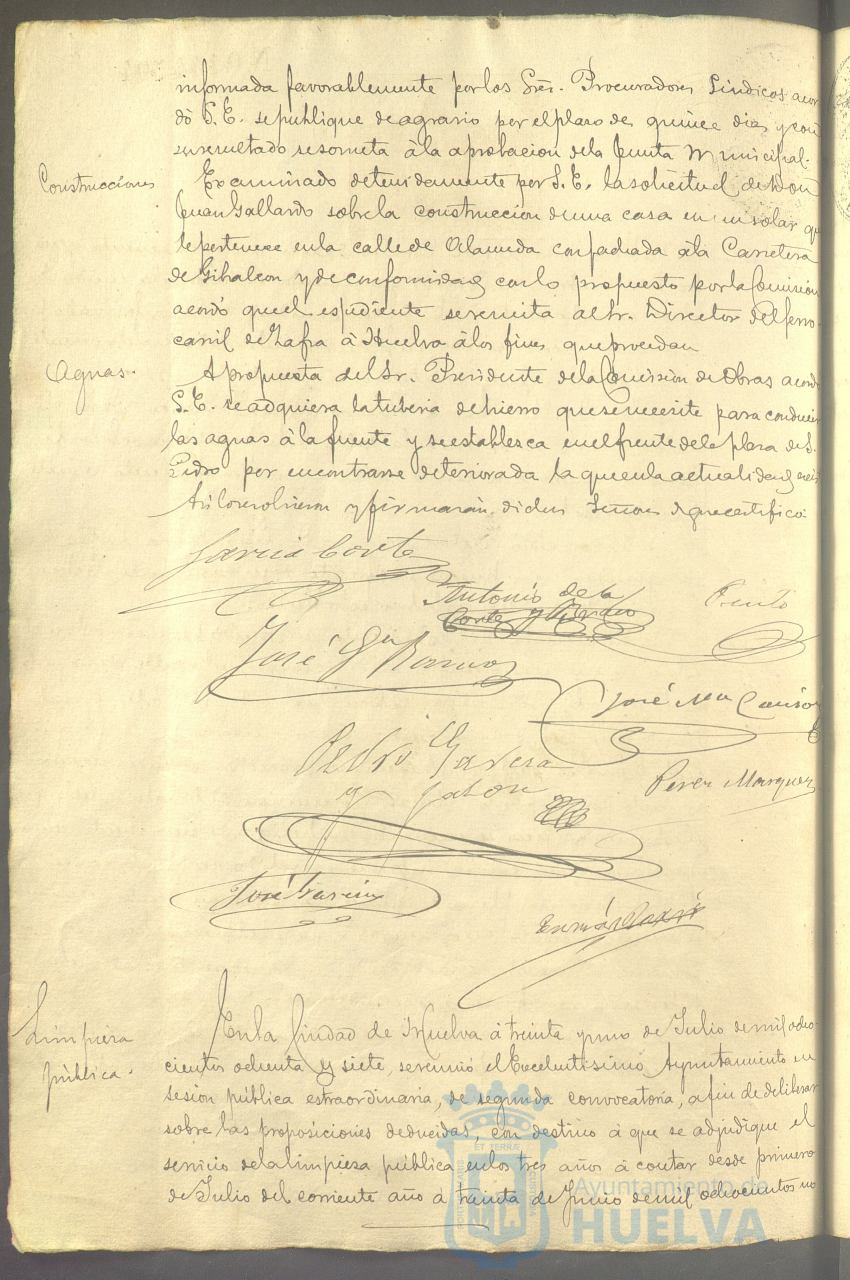 informada favorablemente por los Sres. Procuradores Sindicos acor
dó S.E. se publique de agrario por el plazo de quince dias y con
su resultado se someta á la aprobacion de la Junta Municipal.
Construcciones
Examinado detenidamente por S.E. la solicitud de Don
Juan Gallardo sobre la construccion de una casa en un solar qu
le pertenece en la calle de Alameda con fachada á la Carretera
de Gibraleon y de conformidad con lo propuesto por la Comision
acordó que el espediente se remita al Sr. Director del ferro
carril de Zafra á Huelva á los fines que procedan
Aguas.
A propuesta del Sr. Presidente de la Comision de Obras acord
S.E. se adquiera la tuberia de hierro que se necesite para conducir
las aguas á la fuente y se establesca en el frente de la plaza de S.
Pedro por encontrarse deteriorada la que en la actualidad
Asi lo resolvieron y firmarán dichos Señores de que certifico
Garcia Corte
Antonio de la
Corte y
Pinto
José Gn Ramos
José Ma
Pedro Garcia
y Jalon
Perez Marquez
José Garcia
Limpieza
pública.
En la Ciudad de Huelva á treinta y uno de Julio de mil ocho
cientos ochenta y siete, se reunió el Excelentisimo Ayuntamiento en
sesion pública estraordinaria, de segunda convocatoria, a fin de deliberar
sobre las proposiciones deducidas, con destino á que se adjudique el
servicio de la limpieza pública en los tres años á contar desde primero
de Julio del corriente año á treinta de Junio de mil ochocientos no
Ayuntamiento de
HUELVA